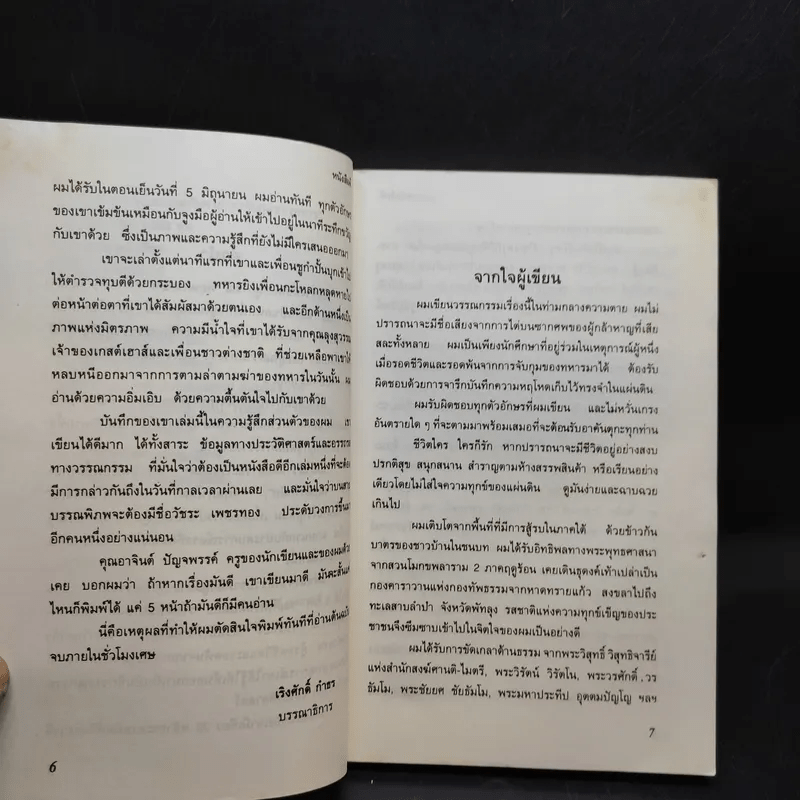 หนังสือ
ผมได้รับในตอนเย็นวันที่ 5 มิถุนายน ผมอ่านทันที ทุกตัวอักษร
ของเขาเข้มข้นเหมือนกับจูงมือผู้อ่านให้เข้าไปอยู่ในนาทีระทึกขวัญ
กับเขาด้วย ซึ่งเป็นภาพและความรู้สึกที่ยังไม่มีใครเสนอออกมา
เขาจะเล่าตั้งแต่นาทีแรกที่เขาและเพื่อนชูกำปั้นบุกเข้าไป
ให้ตำรวจทุบตีด้วยกระบอง ทหารยิงเพื่อนกะโหลกหลุดหายไป
ต่อหน้าต่อตาที่เขาได้สัมผัสมาด้วยตนเอง และอีกด้านหนึ่งเป็น
ภาพแห่งมิตรภาพ ความมีน้ำใจที่เขาได้รับจากคุณลุงสุวรรณ
เจ้าของเกสต์เฮาส์และเพื่อนชาวต่างชาติ ที่ช่วยเหลือพาเขา
หลบหนีออกมาจากการตามล่าตามฆ่าของทหารในวันนั้น ผม
อ่านด้วยความอิ่มเอิบ ด้วยความตื้นตันใจไปกับเขาด้วย
บันทึกของเขาเล่มนี้ในความรู้สึกส่วนตัวของผม เขา
เขียนได้ดีมาก ได้ทั้งสาระ ข้อมูลทางประวัติศาสตร์และอรรถรส
ทางวรรณกรรม ที่มั่นใจว่าต้องเป็นหนังสือดีอีกเล่มหนึ่งที่จะต้อง
มีการกล่าวกันถึงในวันที่กาลเวลาผ่านเลย และมั่นใจว่าบนสาย
บรรณพิภพจะต้องมีชื่อวัชระ เพชรทอง ประดับวงการขึ้นมา
อีกคนหนึ่งอย่างแน่นอน
คุณอาจินต์ ปัญจพรรค์ ครูของนักเขียนและของผมด้วย
เคย บอกผมว่า ถ้าหากเรื่องมันดี เขาเขียนมาดี มันจะสั้นแค่
ไหนก็พิมพ์ได้ แค่ 5 หน้าถ้ามันดีก็มีคนอ่าน
นี่คือเหตุผลที่ทำให้ผมตัดสินใจพิมพ์ทันทีที่อ่านต้นฉบับ
จบภายในชั่วโมงเศษ
เริงศักดิ์ กำธร
บรรณาธิการ
6
จากใจผู้เขียน
ผมเขียนวรรณกรรมเรื่องนี้ในท่ามกลางความตาย ผมไม่
ปรารถนาจะมีชื่อเสียงจากการไต่บนซากศพของผู้กล้าหาญที่เสีย
สละทั้งหลาย ผมเป็นเพียงนักศึกษาที่อยู่ร่วมในเหตุการณ์ผู้หนึ่ง
เมื่อรอดชีวิตและรอดพ้นจากการจับกุมของทหารมาได้ ต้องรับ
ผิดชอบด้วยการจารึกบันทึกความหฤโหดเก็บไว้ทรงจำในแผ่นดิน
ผมรับผิดชอบทุกตัวอักษรที่ผมเขียน และไม่หวั่นเกรง
อันตรายใด ๆ ที่จะตามมาพร้อมเสมอที่จะต้อนรับอาคันตุกะทุกท่าน
ชีวิตใคร ใครก็รัก หากปรารถนาจะมีชีวิตอยู่อย่างสงบ
ปรกติสุข สนุกสนาน สำราญตามห้างสรรพสินค้า หรือเรียนอย่าง
เดียวโดยไม่ใส่ใจความทุกข์ของแผ่นดิน ดูมันง่ายและฉาบฉวย
เกินไป
ผมเติบโตจากพื้นที่ที่มีการสู้รบในภาคใต้ ด้วยข้าวก้น
บาตรของชาวบ้านในชนบท ผมได้รับอิทธิพลทางพระพุทธศาสนา
จากสวนโมกขพลาราม 2 ภาคฤดูร้อน เคยเดินธุดงค์เท้าเปล่าเป็น
กองคาราวานแห่งกองทัพธรรมจากหาดทรายแก้ว สงขลาไปถึง
ทะเลสาบลำปำ จังหวัดพัทลุง รสชาติแห่งความทุกข์เข็ญของประ
ชาชนจึงซึมซาบเข้าไปในจิตใจของผมเป็นอย่างดี
ผมได้รับการขัดเกลาด้านธรรม จากพระวิสุทธิ์ วิสุทธิจารีย์
แห่งสำนักสงฆ์ศานติ-ไมตรี, พระวิรัตน์ วิรัตโน, พระวรศักดิ์ วร
ธัมโม, พระชัยยศ ชัยธัมโม, พระมหาประทีป อุตตมปัญโญ ฯลฯ
7